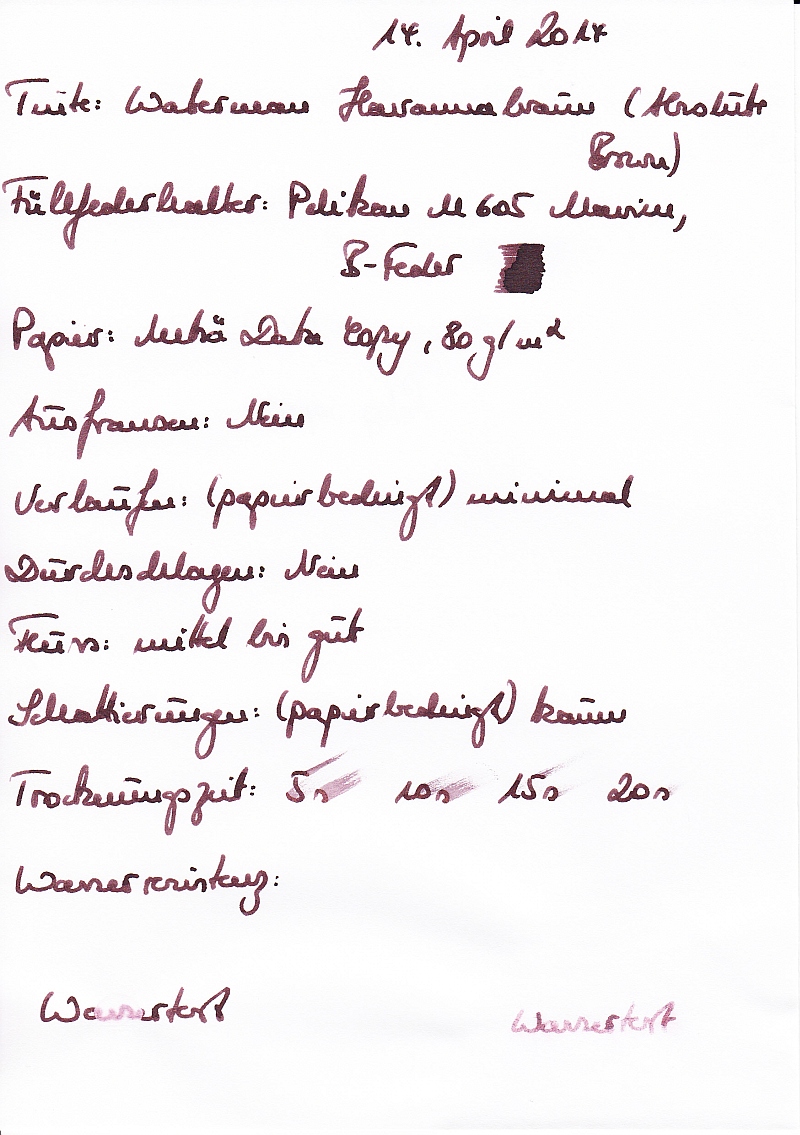 14. April 2014
Tinte: Waterman Havannabraun (Absolute
Brown)
Füllfederhalter: Pelikan M 605 Marine,
B-Feder
Papier: Metrö Data Copy, 80 g/m²
Ausfransen: Nein
Verlaufen: (papierbedingt) minimal
Durchschlagen: Nein
Fluss: mittel bis gut
Schattierungen: (papierbedingt) kaum
Trocknungszeit: 5s 10s 15s 20s
Wasserresistenz:
Wassertest Wassertest